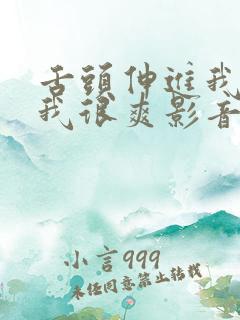 舌頭伸進我
我很爽影音
小言999
未经同意禁止转载